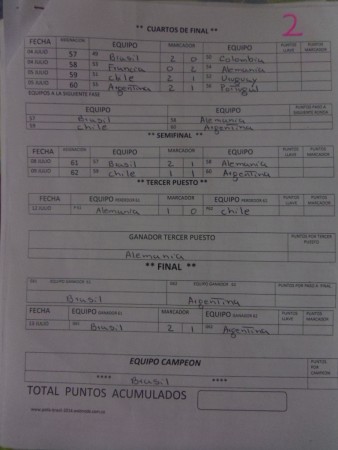 2
** CUARTOS DE FINAL **
FECHA EQUIPO MARCADOR EQUIPO PUNTOS LLAVE PUNTOS MARCADOR
04 JULIO 57 49 Brasil 2 0 50 Colombia
04 JULIO 58 53 Francia 0 2 54 Alemania
05 JULIO 59 51 Chile 2 1 52 Uruguay
05 JULIO 60 55 Argentina 2 1 56 Portugal
EQUIPOS A LA SIGUIENTE FASE
EQUIPO EQUIPO PUNTOS PASO A SIGUIENTE RONDA
57 Brasil 58 Alemania
59 Chile 60 Argentina
** SEMIFINAL **
FECHA EQUIPO MARCADOR EQUIPO PUNTOS LLAVE PUNTOS MARCADOR
08 JULIO 61 57 Brasil 2 1 58 Alemania
09 JULIO 62 59 Chile 1 1 60 Argentina
** TERCER PUESTO **
FECHA EQUIPO PERDEDOR 61 MARCADOR EQUIPO PERDEDOR 62 PUNTOS LLAVE PUNTOS MARCADOR
12 JULIO P61 Alemania 1 0 P62 Chile
GANADOR TERCER PUESTO PUNTOS POR TERCER PUESTO
Alemania
** FINAL **
G61 EQUIPO GANADOR 61 G62 EQUIPO GANADOR 62 PUNTOS POR PASO A FINAL
Brasil Argentina
FECHA EQUIPO GANADOR 61 MARCADOR EQUIPO GANADOR 62 PUNTOS LLAVE PUNTOS MARCADOR
13 JULIO G61 Brasil 2 1 G62 Argentina
EQUIPO CAMPEON PUNTOS POR CAMPEON
**** Brasil ****
TOTAL PUNTOS ACUMULADOS